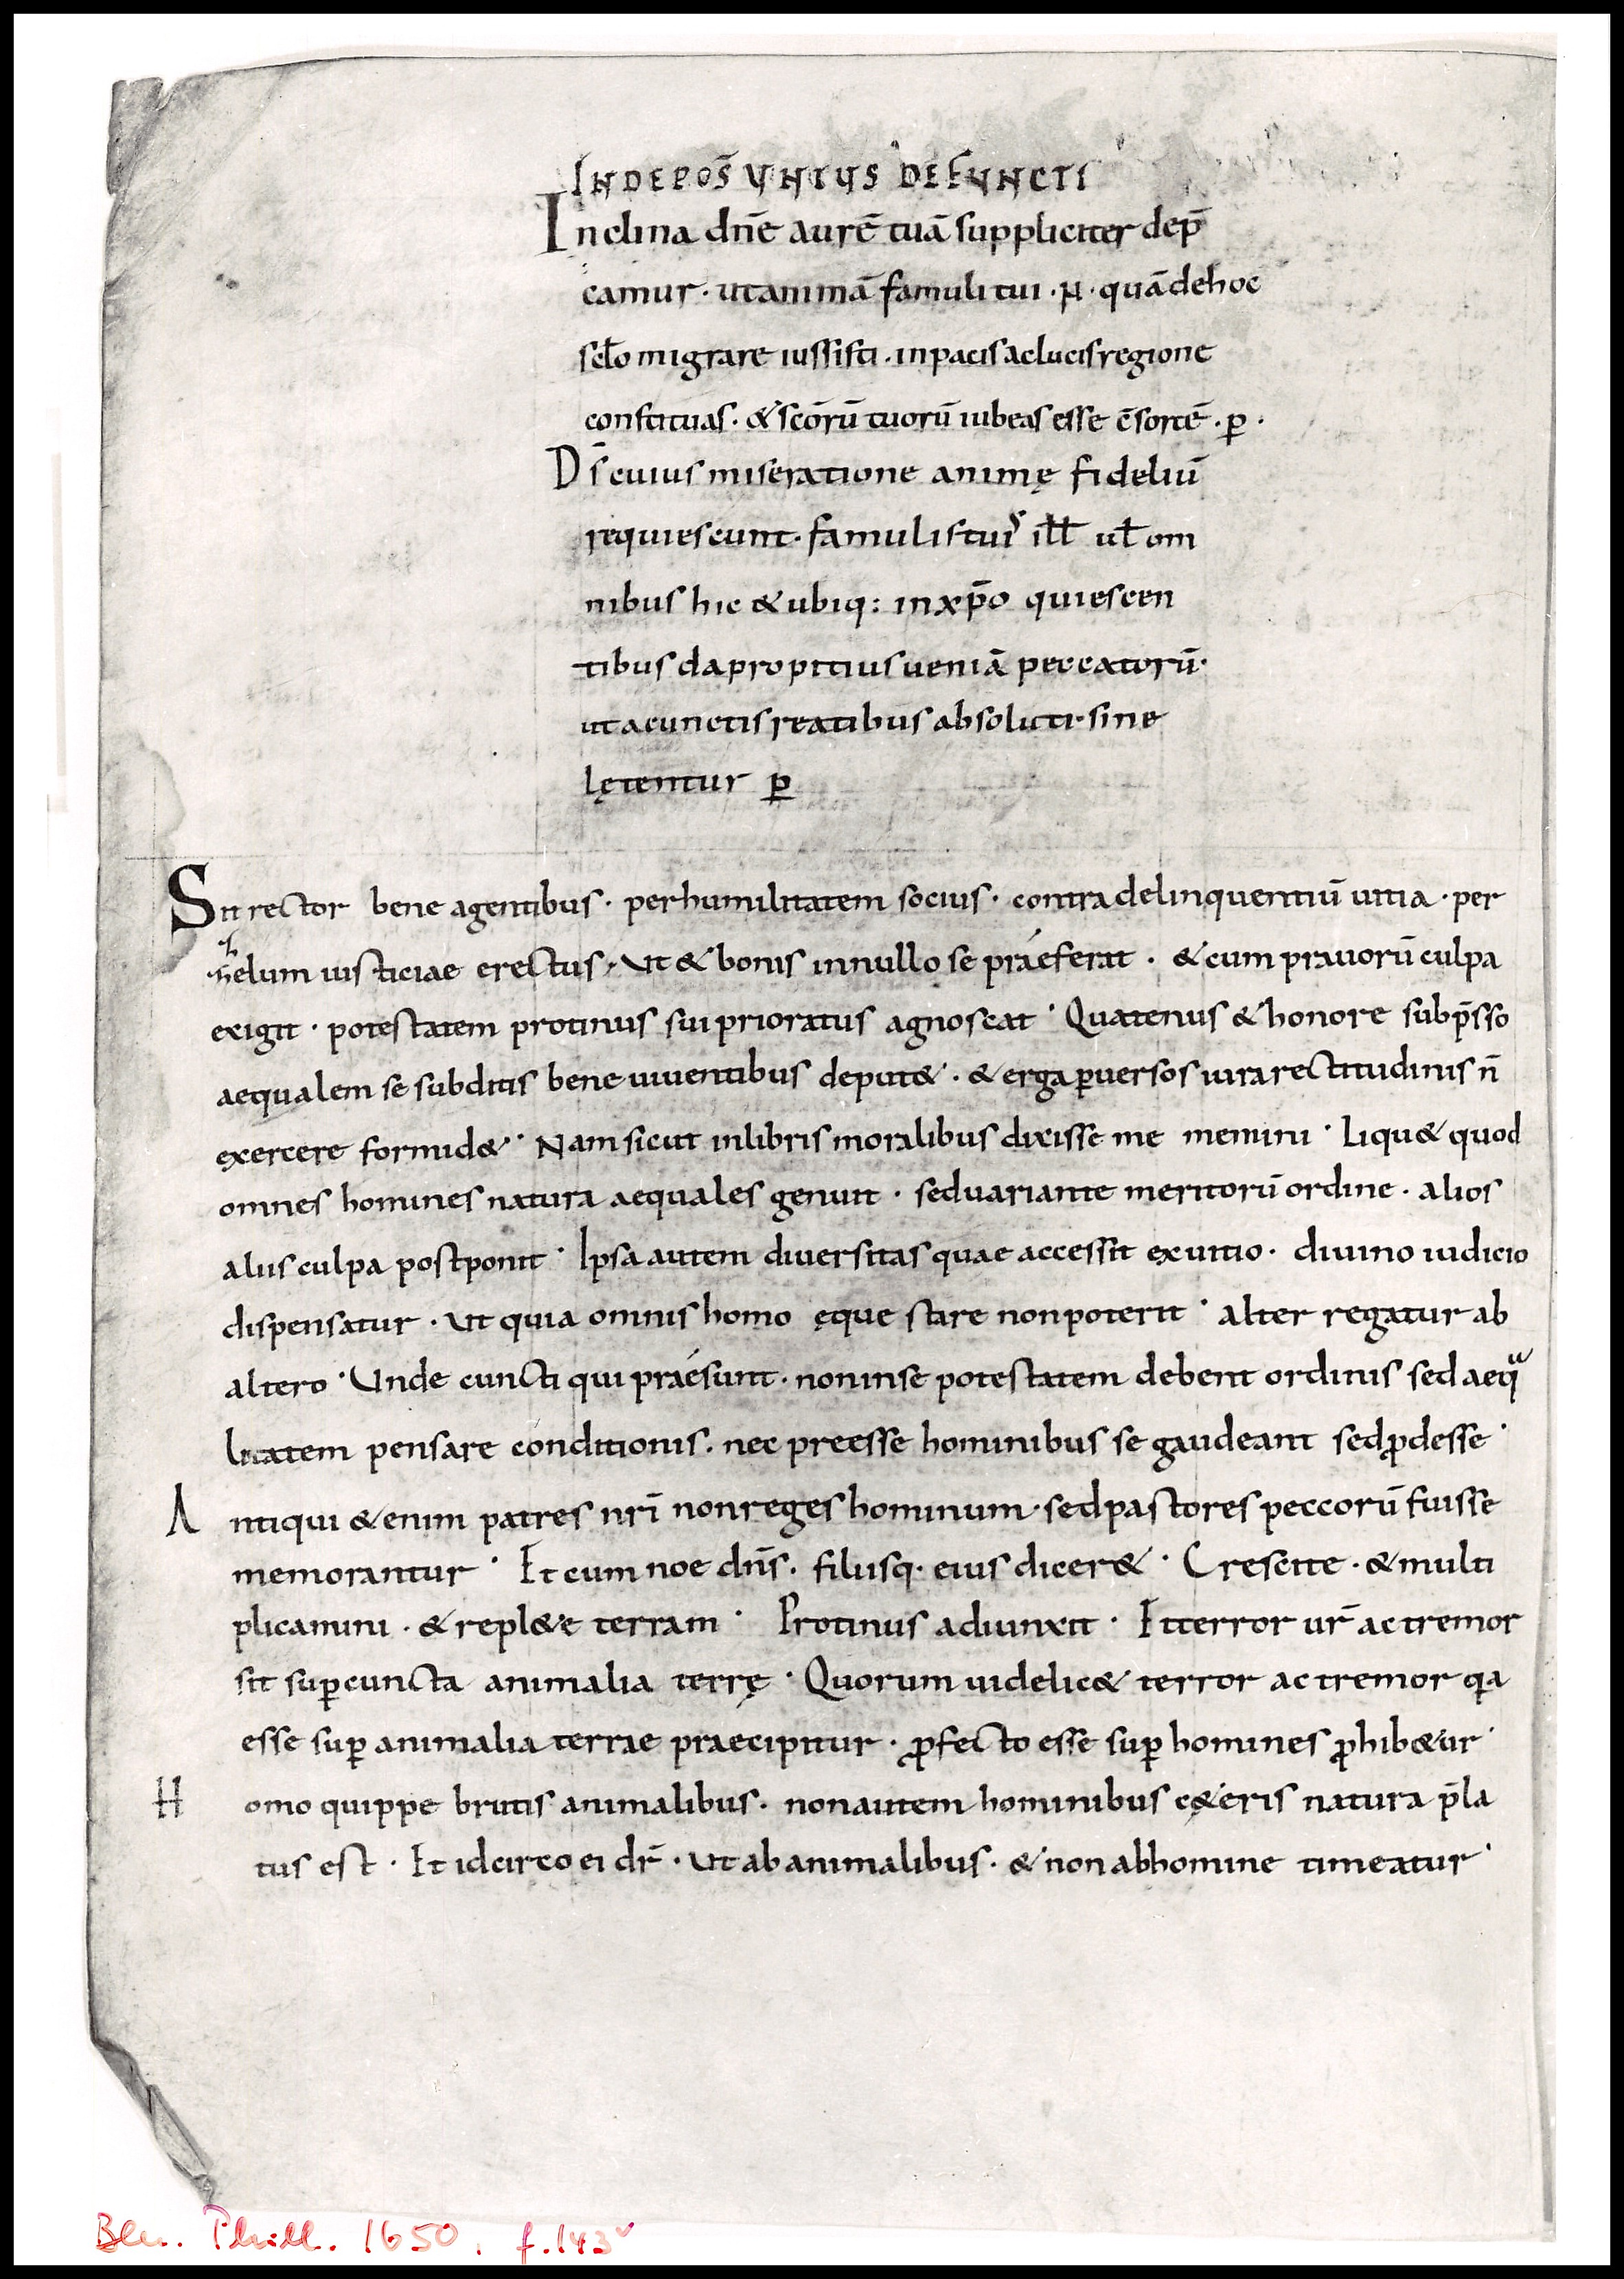 INDEPOS̄ UNIUS DEFUNCTI
Inclina dn̄e aurē tuā suppliciter dep̄
camur · utanimā famuli tui · N · quādehoc
scło migrare iussisti · inpacis aclucisregione
constituas · & scōrū tuorū iubeas esse c̄sortē · p ·
Ds̄ cuius miseratione animę fideliū
requiescunt · famulis tuis ill̄ ul̄ om
nibus hic & ubiq: inxp̄o quiescen
tibus dapropitius ueniā peccatorū ·
ut acunctis reatibus absoluti · sine
lętentur ꝑ
Sit rector bene agentibus · perhumilitatem socius · contradelinquentiū uitia · per
zelum iusticiae erectus · Ut & bonis innullo se praéferat · & cum prauorū culpa
exigit · potestatem protinus sui prioratus agnoscat · Quatenus & honore subp̄sso
aequalem se subditis bene uiuentibus deput& · & erga ꝑuersos iura rectitudinis n̄
exercere formid& · Nam sicut inlibris moralibus dixisse me memini · Liqu& quod
omnes homines natura aequales genuit · seduariante meritorū ordine · alios
aliis culpa postponit · Ipsa autem diuersitas quae accessit exuitio · diuino iudicio
dispensatur · Ut quia omnis homo ęque stare nonpoterit · alter regatur ab
altero · Unde cuncti qui praésunt · noninse potestatem debent ordinis sed aeqᵘᵃ
litatem pensare conditionis · nec preesse hominibus se gaudeant sedꝓdesse ·
Antiqui &enim patres nr̄i nonreges hominum · sedpastores peccorū fuisse
memorantur · Et cum noe dn̄s · filiisq · eius dicer& · Crescite · & multi
plicamini · & repl&e terram · Protinus adiunxit · Etterror ur̄ ac tremor
sit suꝑcuncta animalia terrę · Quorum uidelic& terror ac tremor qa
esse suꝑ animalia terrae praecipitur · ꝓfecto esse suꝑ homines ꝓhib&ur ·
Homo quippe brutis animalibus · nonautem hominibus c&eris natura p̄la
tus est · Et idcirco ei dr̄ · Ut ab animalibus · & non abhomine timeatur ·
Phill. 1650. f.143ᵛ